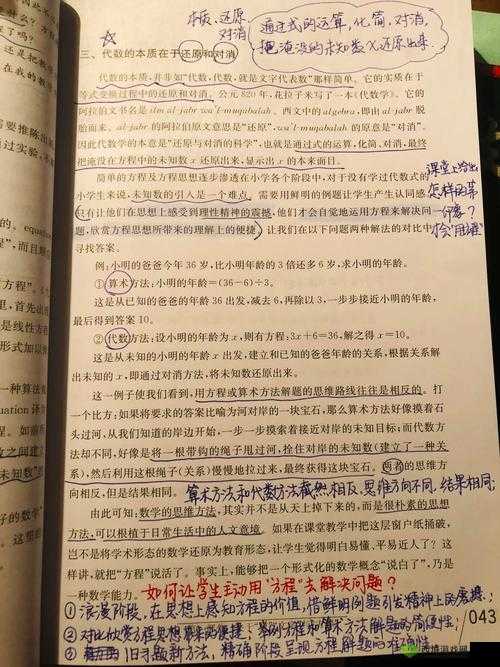 本质:还原
对消
通过式的运算,化简,对消,
把淹没的未知数x还原出来.
三、代数的本质在于还原和对消
代数的本质,并非如“代数,代数,就是文字代表数”那样简单。它的实质在于
等式变换过程中的还原和对消。公元 820 年,花拉子米写了一本《代数学》。它的
阿拉伯文书名是 ilm al-jabr wa'l-muqabalah。西文中的 algebra,即由 al-jabr 脱
胎而来。al-jabr 的阿拉伯原文意思是“还原”,wa'l-muqabalah 的原意是“对消”。
因此代数学的本意是“还原与对消的科学”,也就是通过式的运算、化简、对消,最终
把淹没在方程中的未知数 x 还原出来,显示出 x 的本来面目。
简单的方程及方程思想逐步渗透在小学各个阶段中,对于没有学过代数式的
小学生来说,未知数的引入是一个难点。需要用鲜明的例题让学生产生认同感。
只有让他们在思想上感受到理性精神的震撼,他们才会自觉地运用方程来解决问
题,欣赏方程思想所带来的理解上的便捷。让我们在以下问题两种解法的对比中
寻找答案。
课堂上给出
怎样的第
一例
才会“用”
例:小明的爸爸今年 36 岁,比小明年龄的 3 倍还多 6 岁,求小明的年龄。
①算术方法:小明的年龄=(36-6)÷3。
这是从已知的爸爸的年龄 36 出发,减去 6,再除以 3,一步步接近小明的年龄,
最后得到答案 10。
②代数方法:设小明的年龄为 x,则有方程:3x+6=36,解之得 x=10。
这是从未知的小明的年龄 x 出发,建立和已知的爸爸年龄的关系,根据关系解
出未知的 x,即通过对消方法,将未知数还原出来。
这一例子使我们看到,用方程或算术方法解题的思维路线往往是相反的。打
一个比方:如果将要求的答案比喻为河对岸的一块宝石,那么算术方法好像摸着石
头过河,从我们知道的岸边开始,一步一步摸索着接近对岸的未知目标;而代数方
法却不同,好像是将一根带钩的绳子甩过河,拴住对岸的未知数(建立了一种关
系),然后利用这根绳子(关系)慢慢地拉过来,最终获得这块宝石。两者的思维方
向相反,但是结果相同。
算术方法和代数方法截然相反,思维方向不同,结果相同.
由此可知,数学的思维方法,其实并不是从天上掉下来的,而是很朴素的思想
方法,可以根植于日常生活中的人文意境。如果在课堂教学中把这层窗户纸捅破,
岂不是将学术形态的数学还原为教育形态,让学生觉得明白易懂、平易近人了?这
样讲,就把“方程”说活了。事实上,能够把一个形式化的数学概念“说白了”,乃是
一种数学能力。
如何让学生主动用“方程”去解决问题?
①浪漫阶段,在思想上感知方程的价值,借鲜明例题引发精神上的震撼;
②对比欣赏方程思想带来的便捷:举例方程和算术方法解题的简便性;
③旧习题新方法,精确阶段呈现方程解题的准确性
043